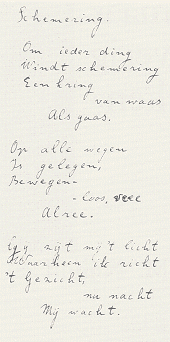 Schemering.
Om ieder ding
Windt schemering
Een kring
van waas
Als gaas.
Op alle wegen
Is gelegen,
Bewegen-
-loos, vree
Alree.
Gij zijt mij 't licht
Waarheen ik richt
't Gezicht,
nu nacht
Mij wacht.